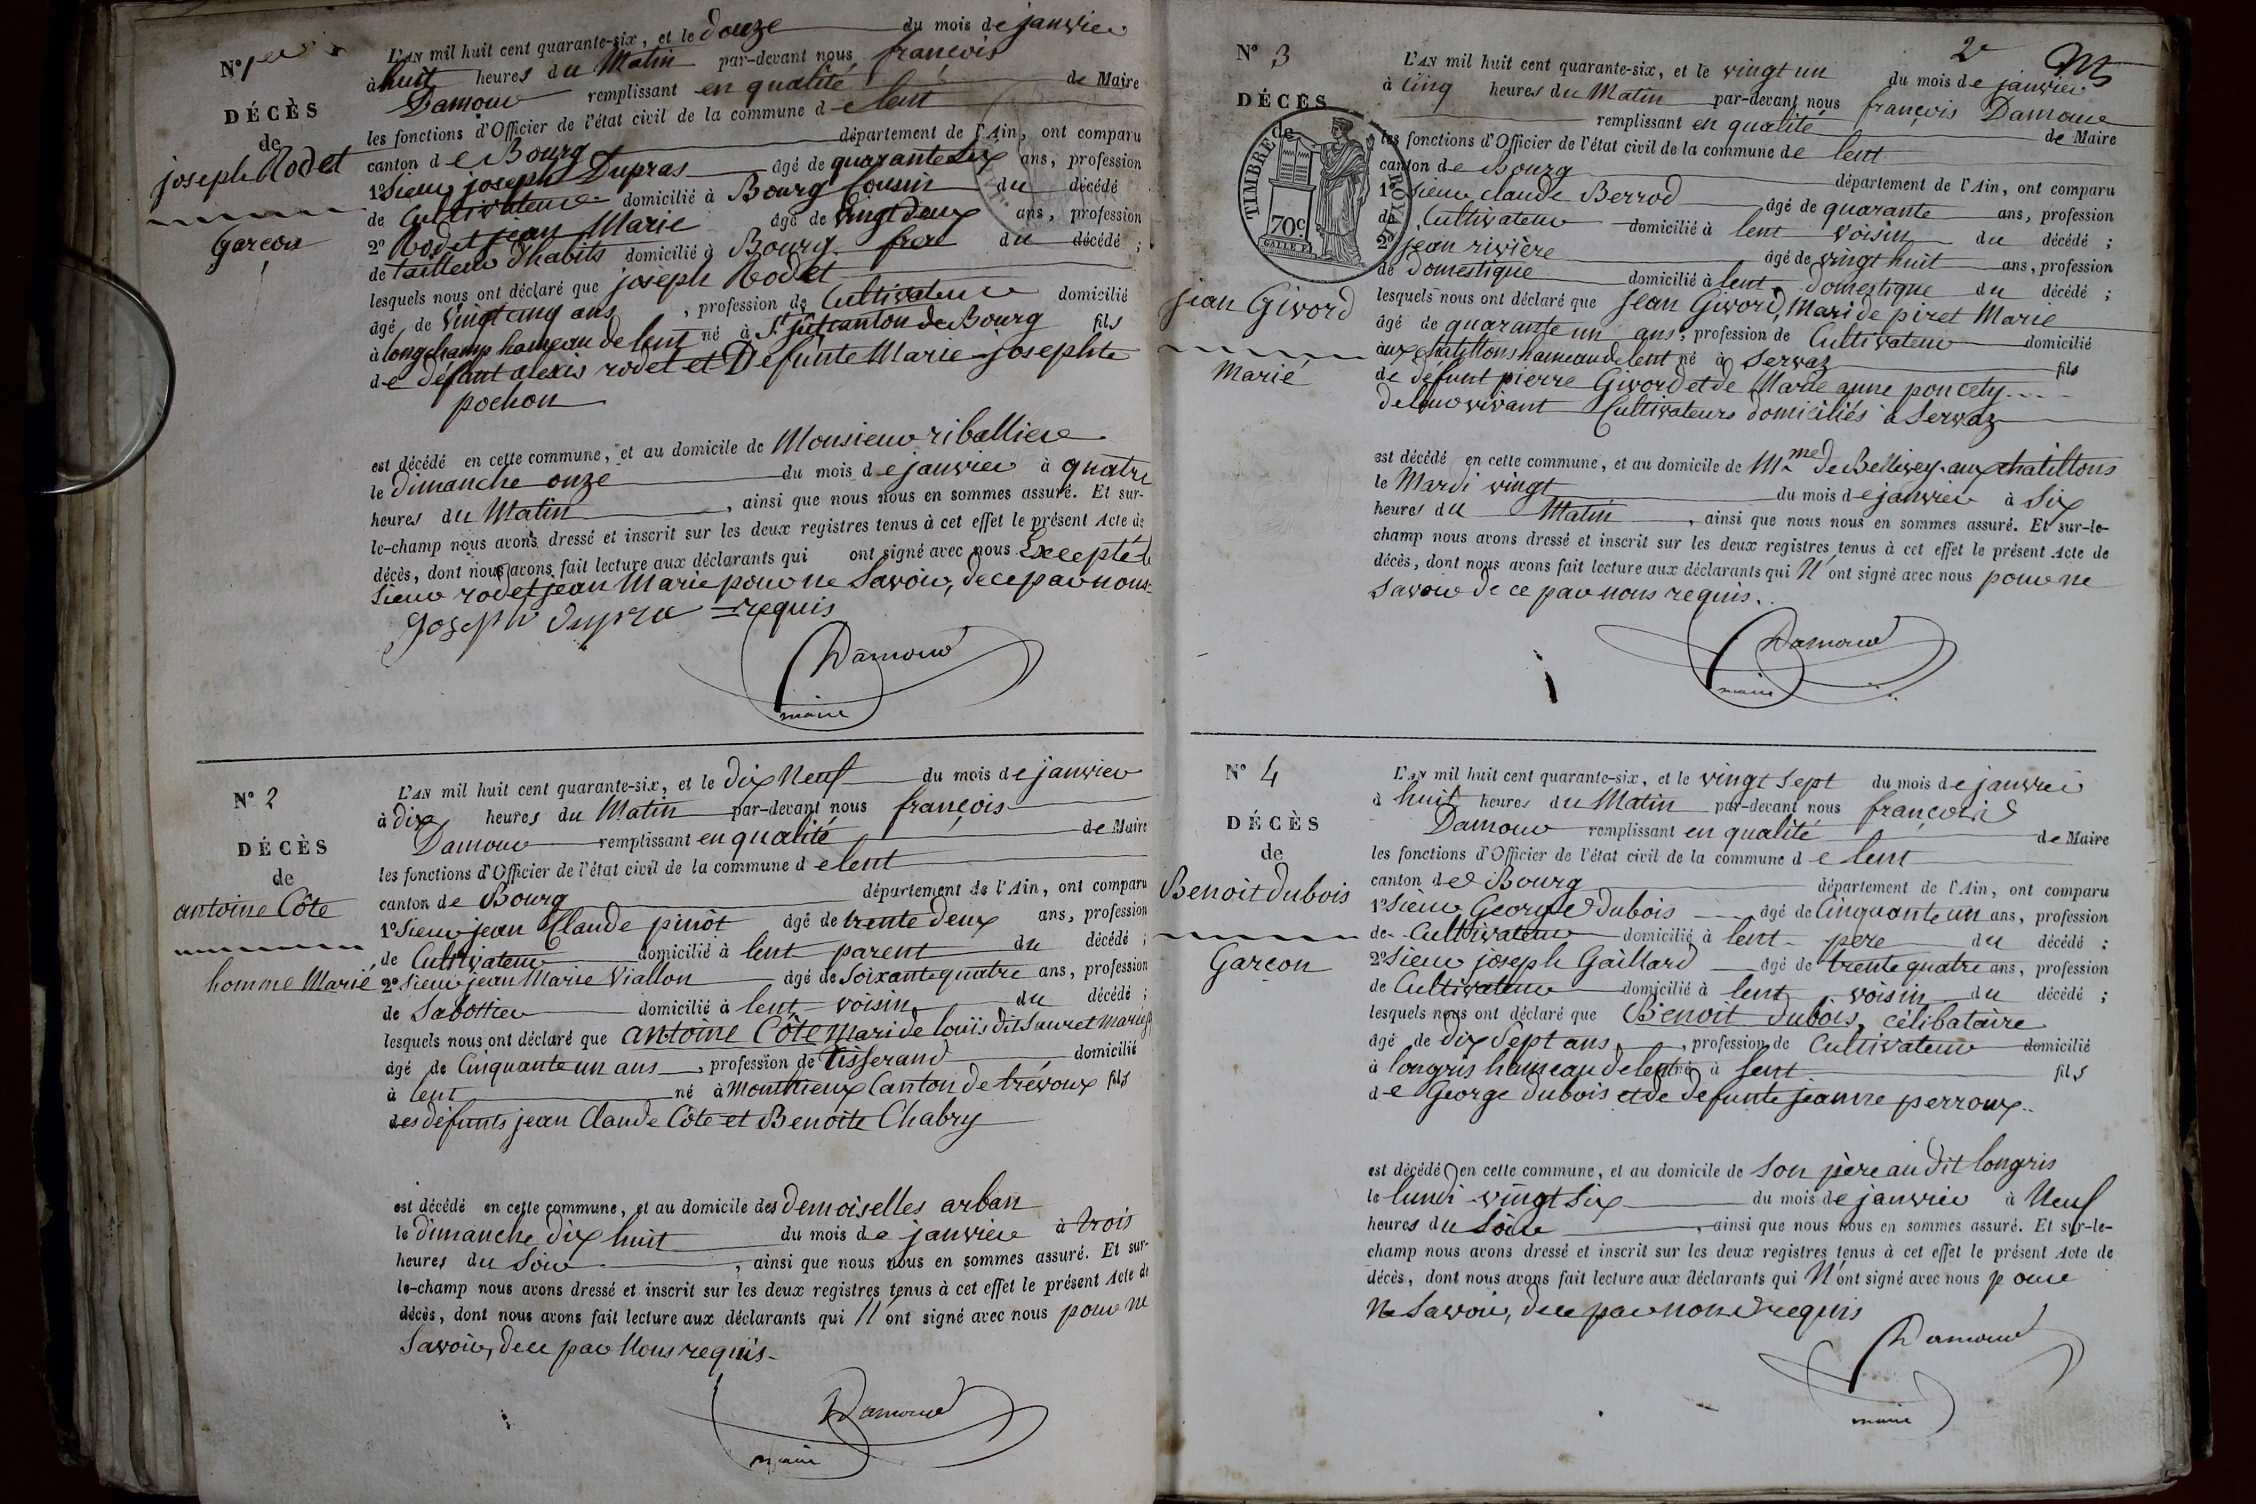 N° 1er
DÉCÈS
de
joseph Rodet
Garçon
L'AN mil huit cent quarante-six, et le douze du mois de janvier
à huit heures du Matin par-devant nous françois
Damour remplissant en qualité de Maire
les fonctions d'Officier de l'état civil de la commune de lent
canton de Bourg département de l'Ain, ont comparu
1° Sieur joseph Dupras âgé de quarante six ans, profession
de Cultivateur domicilié à Bourg Cousin du décédé
2° Rodet jean Marie âgé de vingt deux ans, profession
de tailleur d'habits domicilié à Bourg frere du décédé ;
lesquels nous ont déclaré que joseph Rodet
âgé de vingt cinq ans, profession de Cultivateur domicilié
à longchamp hameau de lent né à St just canton de Bourg fils
de défunt alexis rodet et Defunte Marie josephte
pochon
est décédé en cette commune, et au domicile de Monsieur riballier
le dimanche onze du mois de janvier à quatre
heures du Matin, ainsi que nous nous en sommes assuré. Et sur-
le-champ nous avons dressé et inscrit sur les deux registres tenus à cet effet le présent Acte de
décès, dont nous avons fait lecture aux déclarants qui ont signé avec nous Excepté le
Sieur rodet jean Marie pour ne Savoir, de ce par nous
Joseph dupra requis
Damour
maire
N° 2
DÉCÈS
de
antoine Côte
homme Marié
L'AN mil huit cent quarante-six, et le dix Neuf du mois de janvier
à dix heures du Matin par-devant nous françois
Damour remplissant en qualité de Maire
les fonctions d'Officier de l'état civil de la commune de lent
canton de Bourg département de l'Ain, ont comparu
1° Sieur jean Claude pinôt âgé de trente deux ans, profession
de Cultivateur domicilié à lent parent du décédé ;
2° Sieur jean Marie Viallon âgé de Soixante quatre ans, profession
de Sabottier domicilié à lent voisin du décédé ;
lesquels nous ont déclaré que antoine Côte mari de louis dit Sauret Marie
âgé de Cinquante un ans, profession de tisserand domicilié
à lent né à Monthieux Canton de trévoux fils
des défunts jean Claude Côte et Benoîte Chabry
est décédé en cette commune, et au domicile des demoiselles arban
le dimanche dix huit du mois de janvier à trois
heures du Soir, ainsi que nous nous en sommes assuré. Et sur-
le-champ nous avons dressé et inscrit sur les deux registres tenus à cet effet le présent Acte de
décès, dont nous avons fait lecture aux déclarants qui N'ont signé avec nous pour ne
Savoir, de ce par Nous requis
Damour
maire
2e
N° 3
DÉCÈS
de
TIMBRE ROYAL
70c
jean Givord
Marié
L'AN mil huit cent quarante-six, et le vingt un du mois de janvier
à Cinq heures du Matin par-devant nous françois Damour
remplissant en qualité de Maire
les fonctions d'Officier de l'état civil de la commune de lent
canton de Bourg département de l'Ain, ont comparu
1° Sieur claude Berrod âgé de quarante ans, profession
de Cultivateur domicilié à lent voisin du décédé ;
2° jean rivière âgé de vingt huit ans, profession
de domestique domicilié à lent domestique du décédé ;
lesquels nous ont déclaré que jean Givord, Mari de piret Marie
âgé de quarante un ans, profession de Cultivateur domicilié
aux chatillons hameau de lent né à Servaz fils
de défunt pierre Givord et de Marie anne poncety
de leur vivant Cultivateurs domiciliés à Servaz
est décédé en cette commune, et au domicile de Mme de Bellivey aux chatillons
le Mardi vingt du mois de janvier à Six
heures du Matin, ainsi que nous nous en sommes assuré. Et sur-le-
champ nous avons dressé et inscrit sur les deux registres tenus à cet effet le présent Acte de
décès, dont nous avons fait lecture aux déclarants qui N'ont signé avec nous pour ne
Savoir de ce par nous requis.
Damour
maire
N° 4
DÉCÈS
de
Benoit dubois
Garçon
L'AN mil huit cent quarante-six, et le vingt Sept du mois de janvier
à huit heures du Matin par-devant nous françois
Damour remplissant en qualité de Maire
les fonctions d'Officier de l'état civil de la commune de lent
canton de Bourg département de l'Ain, ont comparu
1° Sieur George dubois âgé de Cinquante un ans, profession
de Cultivateur domicilié à lent pere du décédé ;
2° Sieur joseph Gaillard âgé de trente quatre ans, profession
de Cultivateur domicilié à lent voisin du décédé ;
lesquels nous ont déclaré que Benoit dubois, célibataire
âgé de dix Sept ans, profession de Cultivateur domicilié
à longris hameau de lent né à lent fils
de George dubois et de defunte jeanne perroux
est décédé en cette commune, et au domicile de Son père au dit longris
le lundi vingt Six du mois de janvier à Neuf
heures du Soir, ainsi que nous nous en sommes assuré. Et sur-le-
champ nous avons dressé et inscrit sur les deux registres tenus à cet effet le présent Acte de
décès, dont nous avons fait lecture aux déclarants qui N'ont signé avec nous pour
Ne Savoir, de ce par nous requis
Damour
maire